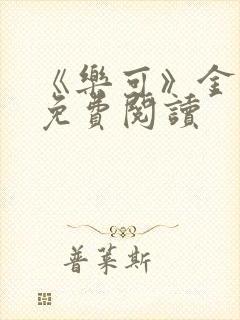 《樂可》金
免費閱讀
普萊斯